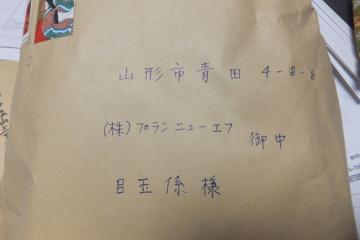 山形市青田4-8-8
(株)プランニューエフ
御中
目玉係様